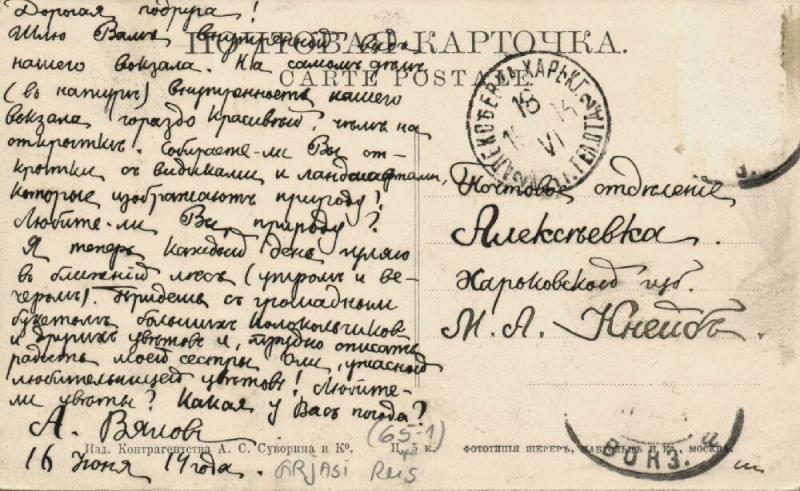 Дорогая подруга!
Шлю Вамъ внутренной видъ
нашего вокзала. На самомъ дѣлѣ
(въ натурѣ) внутренность нашего
вокзала гораздо красивѣй, чѣмъ на
открыткѣ. Собираете-ли Вы от-
крытки съ видиками и ландшафтами,
которые изображаютъ природу?
Любите-ли Вы природу?
Я теперь каждый день гуляю
въ ближній лѣсъ (утромъ и ве-
черомъ). Придешь съ громадным
букетомъ большихъ колокольчиков
и другихъ цвѣтовъ и, трудно описать
радость моей сестры Оли, ужасной
любительницей цвѣтовъ! Любите-
ли цвѣты? Какая у Васъ погода?
А. Вяловъ
16 Июня 14 года.
ПОЧТОВАЯ КАРТОЧКА.
CARTE POSTALE
ХАРЬК.
18
VI
14
Почтовое отдѣленіе
Алексѣевка
Харьковской губ.
М. А. Кнейбъ.
(65-1)
GRJASI Rus
Изд. Контрагентства А. С. Суворина и Ко. Ц. 5 к. ФОТОТИПІЯ ШЕРЕРЪ, НАБГОЛЬЦЪ И Ко, МОСКВА.
ВОКЗ.